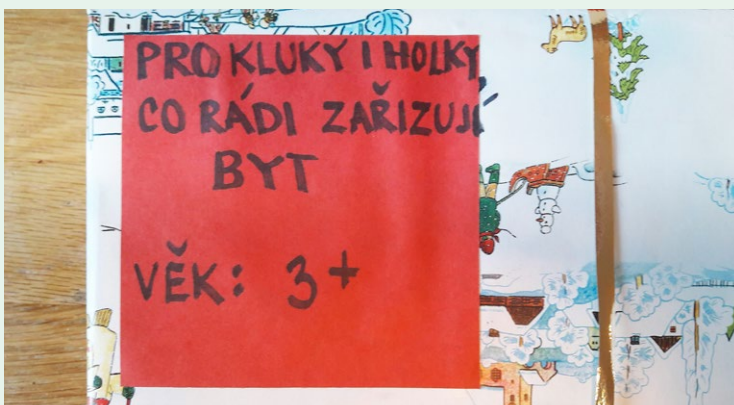 PRO KLUKY I HOLKY
CO RÁDI ZAŘIZUJÍ
BYT
VĚK: 3+